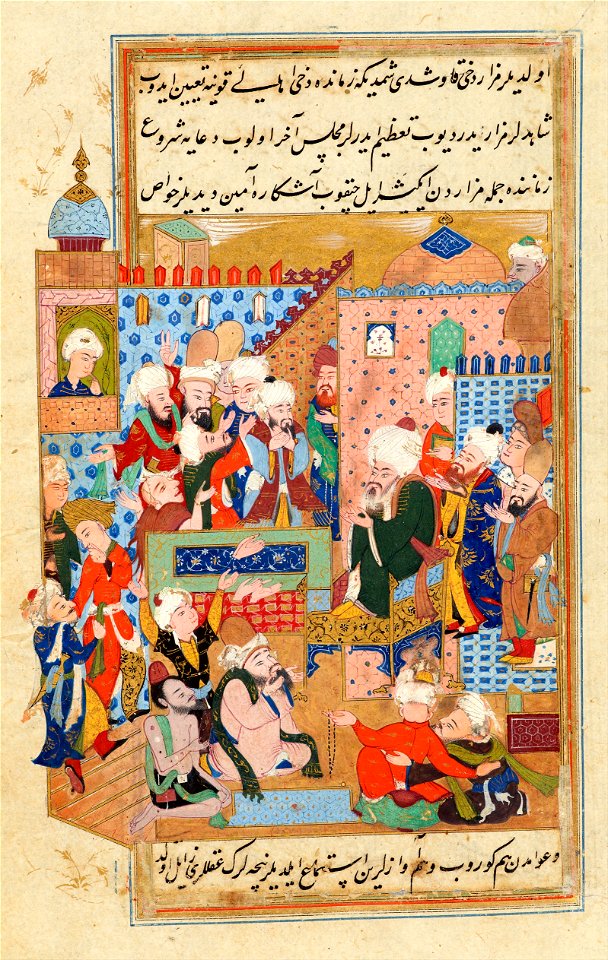 اولدیلر مزاردخی قاوشدی شمدیکه زمانده دخی اهالئ قونیه تعیین ایدوب
شاهدلر مزار یدر دیوب تعظیم ایدرلر مجلس آخر اولوب دعایه شروع
زماننده جمله مزاردن ایل چنقوب آشکاره آمین دیدیلر خواص
وعوامدن هم کوروب وهم آوازلرین استماع ایلدیلر نیچه لرک عقللری زایل اولد